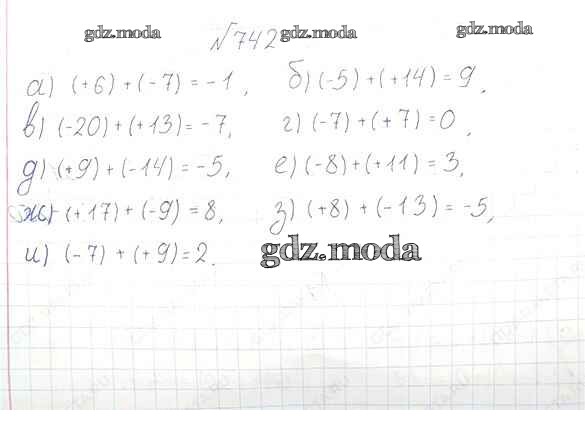 gdz.moda gdz.moda gdz.moda
№742
а) (+6) + (-7) = -1, б) (-5) + (+14) = 9,
в) (-20) + (+13) = -7, г) (-7) + (+7) = 0,
д) (+9) + (-14) = -5, е) (-8) + (+11) = 3,
ж) (+17) + (-9) = 8, з) (+8) + (-13) = -5,
и) (-7) + (+9) = 2.
gdz.moda